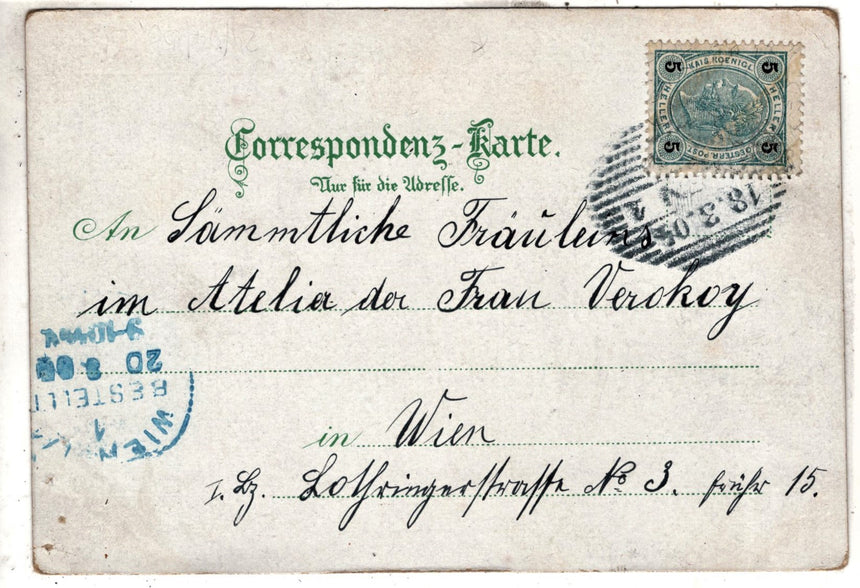 5 KAIS. KOENIGL. 5
HELLER HELLER
5 OESTERR. POST. 5
Correspondenz-Karte.
Nur für die Adresse.
18.3.0
An Sämmtliche Fräuleins
im Atelia der Frau Verokoy
9-10
20 3 00
BESTELLT
1
WIEN
in Wien
I. Bz. Lothringerstrasse No 3. früher 15.